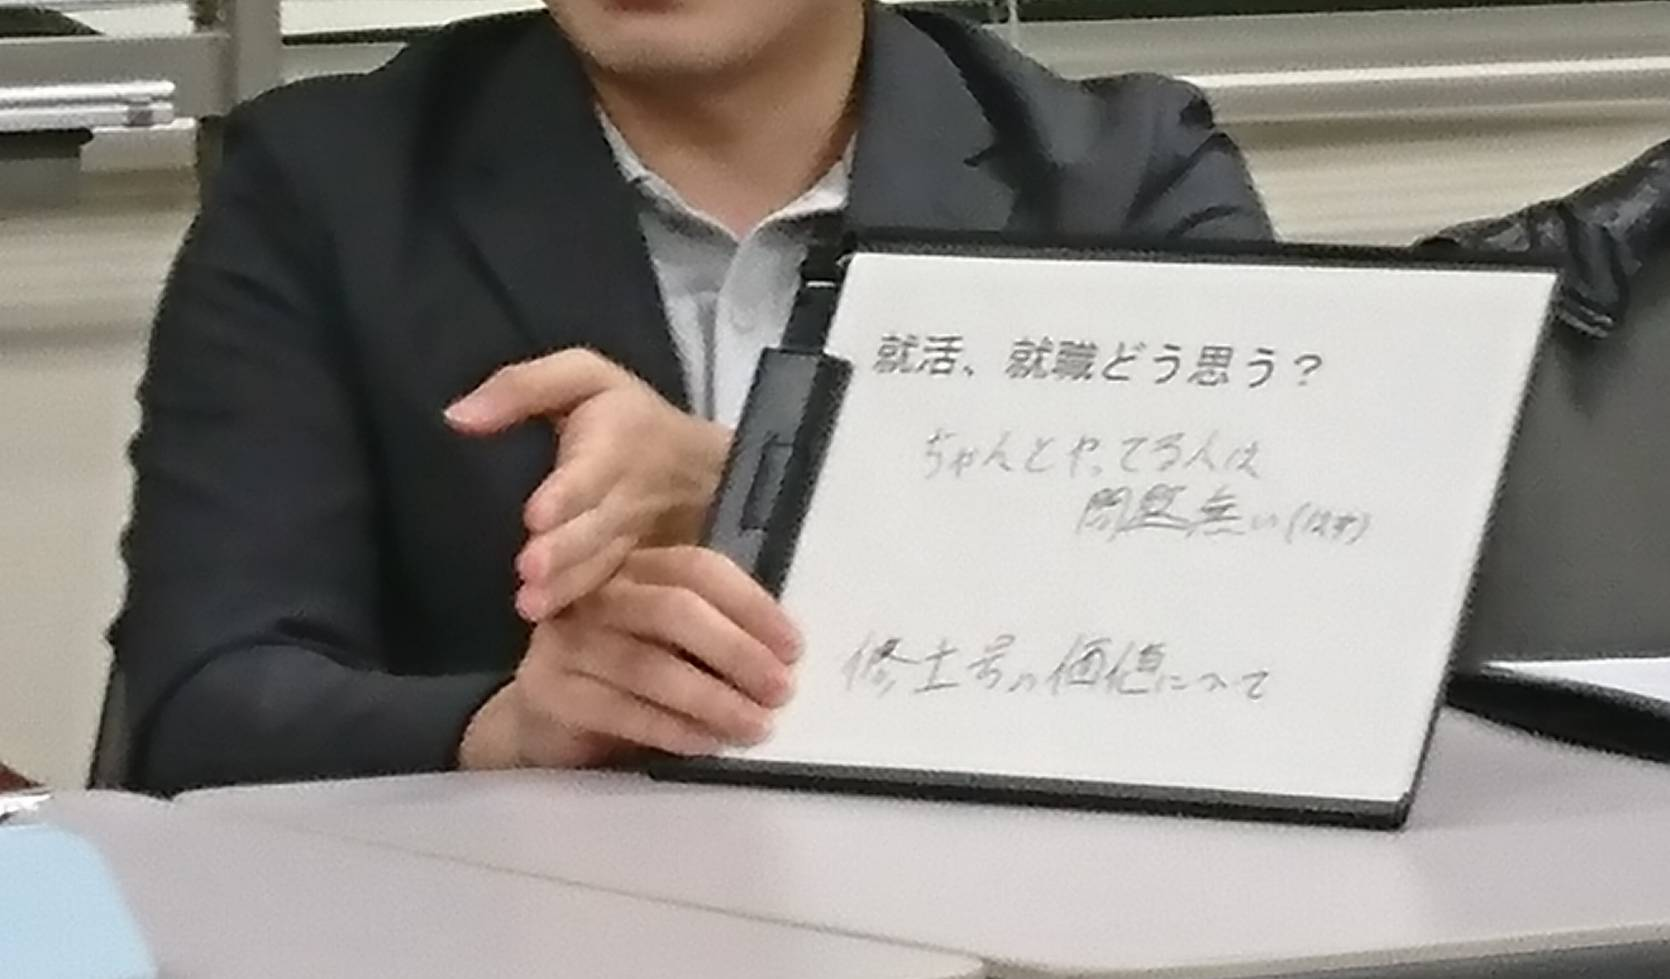 就活、就職どう思う？
ちゃんとやってる人は
問題無い(はず)
修士号の価値について